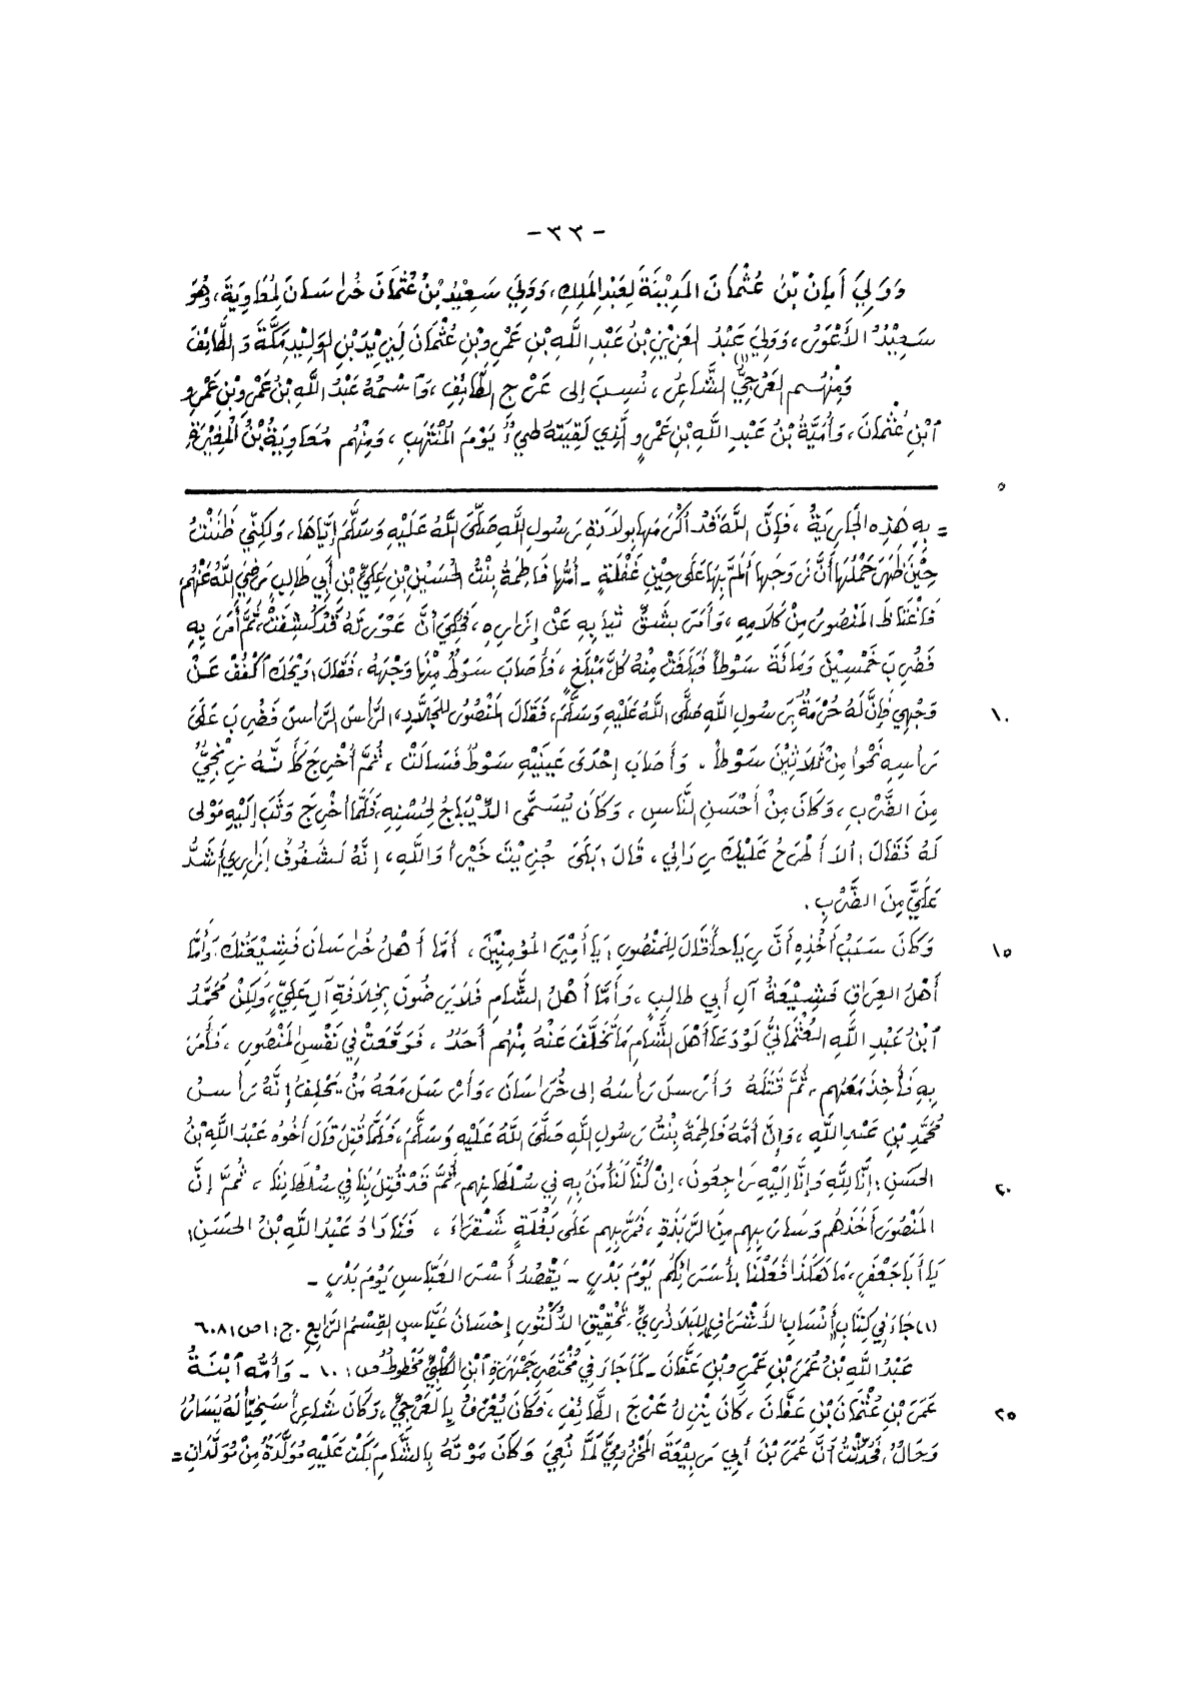 - ٣٣ -
وَوَلِيَ أَبَانُ بْنُ عُثْمَانَ المَدِيْنَةَ لِعَبْدِ المَلِكِ، وَوَلِيَ سَعِيْدُ بْنُ عُثْمَانَ خُرَاسَانَ لِمُعَاوِيَةَ، وَهُوَ
سَعِيْدُ الأَعْوَرُ، وَوَلِيَ عَبْدُ العَزِيْزِ بْنُ عَبْدِ اللَّهِ بْنِ عَمْرِو بْنِ عُثْمَانَ لِيَزِيْدَ بْنِ الوَلِيْدِ مَكَّةَ وَالطَّائِفَ
وَمِنْهُم العَرْجِيُّ (١) الشَّاعِرُ، نُسِبَ إلى عَرْجِ الطَّائِفِ، وَاسْمُهُ عَبْدُ اللَّهِ بْنُ عَمْرِو بْنِ عَمْرِو
ابْنِ عُثْمَانَ، وَأُمَيَّةُ بْنُ عَبْدِ اللَّهِ بْنِ عَمْرٍو الَّذِي لَقِيَتْهُ طَيِّءُ يَوْمَ المُنْتَهَبِ، وَمِنْهُم مُعَاوِيَةُ بْنُ المُغِيْرَةِ
٥
= بِهِ هَذِهِ الجَارِيَةُ، فَإِنَّ اللَّهَ قَدْ أَكْرَمَهَا بِولَادَةِ رَسُولِ اللَّهِ صَلَّى اللَّهُ عَلَيْهِ وَسَلَّمَ إِيَّاهَا، وَلَكِنِّي ظَنَنْتُ
حِيْنَ ظَهَرَ حَمْلُهَا أَنَّ زَوْجَهَا أَلَمَّ بِهَا عَلَى حِيْنِ غَفْلَةٍ - أُمُّها فَاطِمَةُ بِنْتُ الحُسَيْنِ بْنِ عَلِيِّ بْنِ أَبِي طَالِبٍ رَضِيَ اللَّهُ عَنْهُم،
فَاغْتَاظَ المَنْصُورُ مِنْ كَلَامِهِ، وَأَمَرَ بِشَقِّ ثِيَابِهِ عَنْ إِزَارِهِ، فَحُكِيَ أَنَّ عَوْرَتَهُ قَدْ كُشِفَتْ، ثُمَّ أَمَرَ بِهِ
فَضُرِبَ خَمْسِيْنَ وَمِائَةَ سَوْطاً فَبَلَغَتْ مِنْهُ كُلَّ مَبْلَغٍ، فَأَصَابَ سَوْطٌ مِنْهَا وَجْهَهُ، فَقَالَ: وَيْحَكَ اكْفُفْ عَنْ
وَجْهِي فَإِنَّ لَهُ حُرْمَةً بِرَسُولِ اللَّهِ صَلَّى اللَّهُ عَلَيْهِ وَسَلَّمَ، فَقَالَ المَنْصُورُ لِلْجَلَّادِ: الرَّأْسَ الرَّأْسَ فَضُرِبَ عَلَى
١٠
رَأْسِهِ نَحْواً مِنْ ثَلَاثِيْنَ سَوْطاً. وَأَصَابَ إِحْدَى عَيْنَيْهِ سَوْطٌ فَسَالَتْ، ثُمَّ أُخْرِجَ كَأَنَّهُ زِنْجِيٌّ
مِنَ الضَّرْبِ، وَكَانَ مِنْ أَحْسَنِ النَّاسِ، وَكَانَ يُسَمَّى الدِّيْبَاجُ لِحُسْنِهِ، فَلَمَّا أُخْرِجَ وَثَبَ إِلَيْهِ مَوْلَى
لَهُ فَقَالَ: أَلاَ أَطْرَحُ عَلَيْكَ رِدَائِي، قَالَ: بَلَى جُزِيْتَ خَيْراً وَاللَّهِ، إِنَّهُ لَشُفُوفُ إِزَارِي أَشَدُّ
عَلَيَّ مِنَ الضَّرْبِ.
وَكَانَ سَبَبُ أَخْذِهِ أَنَّ رِيَاحاً قَالَ لِلْمَنْصُورِ: يَا أَمِيْرَ المُؤْمِنِيْنَ، أَمَّا أَهْلُ خُرَاسَانَ فَشِيْعَتُكَ. وَأَمَّا
١٥
أَهْلُ العِرَاقِ فَشِيْعَةُ آلِ أَبِي طَالِبٍ، وَأَمَّا أَهْلُ الشَّامِ فَلَا يَرْضُونَ بِخِلَافَةِ آلِ عَلِيٍّ، وَلَكِنْ مُحَمَّدُ
ابْنُ عَبْدِ اللَّهِ العُثْمَانِيُّ لَوْ دَعَا أَهْلَ الشَّامِ مَا تَخَلَّفَ عَنْهُ مِنْهُم أَحَدٌ، فَوَقَعَتْ فِي نَفْسِ المَنْصُورِ، فَأَمَرَ
بِهِ فَأُخِذَ مَعَهُم، ثُمَّ قَتَلَهُ وَأَرْسَلَ رَأْسَهُ إِلى خُرَاسَانَ، وَأَرْسَلَ مَعَهُ مَنْ يَحْلِفُ: إِنَّهُ رَأْسُ
مُحَمَّدِ بْنِ عَبْدِ اللَّهِ، وَإِنَّ أُمَّهُ فَاطِمَةُ بِنْتُ رَسُولِ اللَّهِ صَلَّى اللَّهُ عَلَيْهِ وَسَلَّمَ، فَلَمَّا قُتِلَ قَالَ أَخُوهُ عَبْدُ اللَّهِ بْنُ
الحَسَنِ: إِنَّا لِلَّهِ وَإِنَّا إِلَيْهِ رَاجِعُونَ، إِنْ كُنَّا لَنَأْمَنُ بِهِ فِي سُلْطَانِهِم، ثُمَّ قَدْ قُتِلَ بِنَا فِي سُلْطَانِنَا، ثُمَّ إِنَّ
٢٠
المَنْصُورَ أَخَذَهُم وَسَارَ بِهِم مِنَ الرَّبَذَةِ، فَمَرَّ بِهِم عَلَى بَغْلَةٍ شَقْرَاءَ، فَنَادَاهُ عَبْدُ اللَّهِ بْنُ الحَسَنِ:
يَا أَبَا جَعْفَرٍ، مَا هَكَذَا فَعَلْنَا بِأُسَرَائِكُم يَوْمَ بَدْرٍ - يَقْصُدُ أَسْرَ العَبَّاسِ يَوْمَ بَدْرٍ -
(١) جَاءَ فِي كِتَابِ أَنْسَابِ الأَشْرَافِ لِلبَلَاذُرِيِّ، تَحْقِيْقِ الدُّكْتُورِ إِحْسَان عَبَّاسٍ القِسْمِ الرَّابِعِ. ج: ١ ص: ٦٠٨
عَبْدُ اللَّهِ بْنُ عُمَرَ بْنِ عَمْرِو بْنِ عَفَّانَ - كَمَا جَاءَ فِي مُخْتَصَرِ جَمْهَرَةِ ابْنِ الكَلْبِيِّ مَخْطُوطٌ ص: ١٠ - وَأُمُّه ابْنَةُ
عُمَرَ بْنِ عُثْمَانَ بْنِ عَفَّانَ، كَانَ يَنْزِلُ عَرْجَ الطَّائِفِ، فَكَانَ يُعْرَفُ بِالعَرْجِيِّ، وَكَانَ شَاعِراً سَخِيّاً لَهُ يَسَارٌ
٢٥
وَحَالٌ، فَحُدِّثْتُ أَنَّ عُمَرَ بْنَ أَبِي رَبِيْعَةَ المَخْزُومِيَّ لَمَّا نُعِيَ وَكَانَ مَوْتُهُ بِالشَّامِ بَكَتْ عَلَيْهِ مُوَلَّدَةٌ مِنْ مُوَلَّدَاتِ =